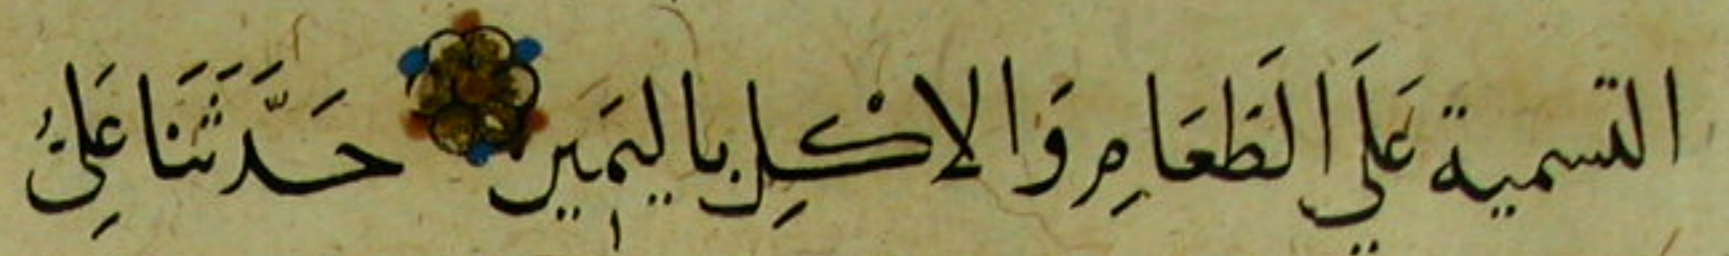 التسمية عَلَي الطَّعَامِ وَالاكْلِ باليَمين حَدَّثَنَا عَلِيُّ